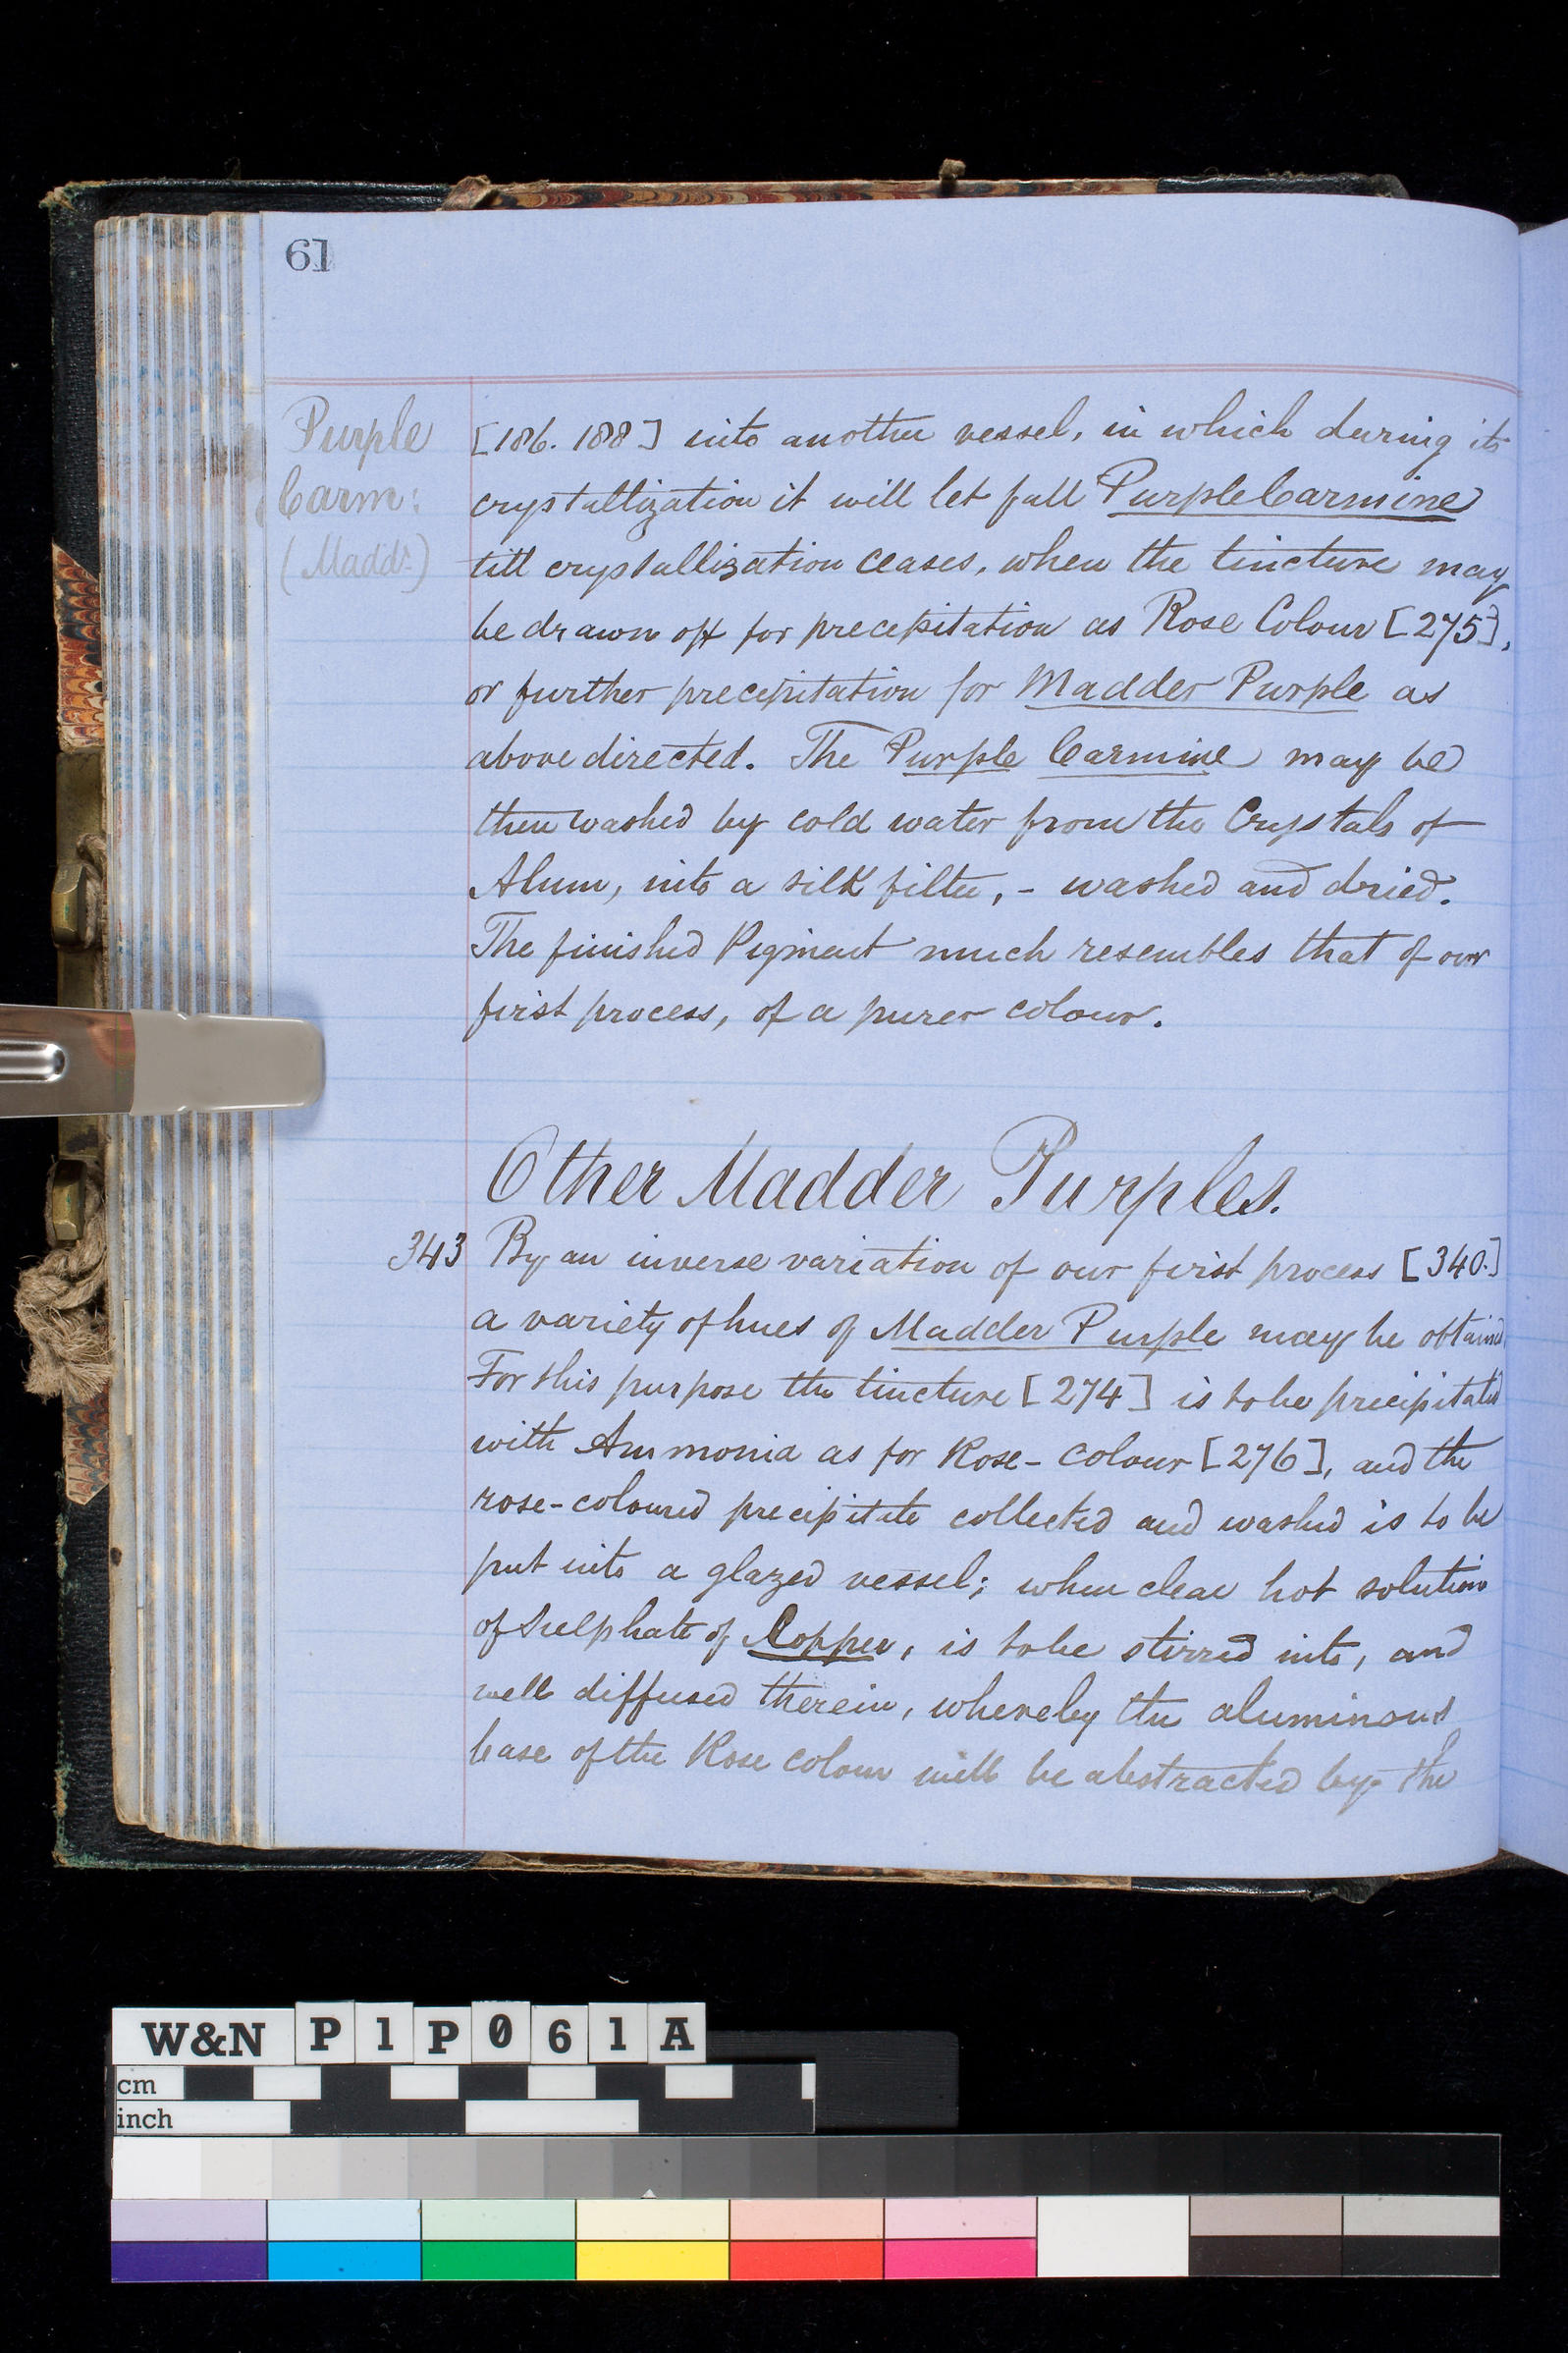 61
Purple
Carm:
(Maddr)
[186. 188] into another vessel, in which during its
crystallization it will let fall Purple Carmine
till crystallization ceases, when the tincture may
be drawn off for precipitation as Rose Colour [275],
or further precipitation for Madder Purple as
above directed. The Purple Carmine may be
then washed by cold water from the Crystals of
Alum, into a silk filter, - washed and dried.
The finished Pigment much resembles that of our
first process, of a purer colour.
Other Madder Purples.
343 By an inverse variation of our first process [340.]
a variety of hues of Madder Purple may be obtained
For this purpose the tincture [274] is to be precipitated
with Ammonia as for Rose-Colour [276], and the
rose-coloured precipitate collected and washed is to be
put into a glazed vessel; when clear hot solution
of Sulphate of Copper, is to be stirred into, and
well diffused therein, whereby the aluminous
base of the Rose colour will be abstracted by the
W&N P1P061A
cm
inch